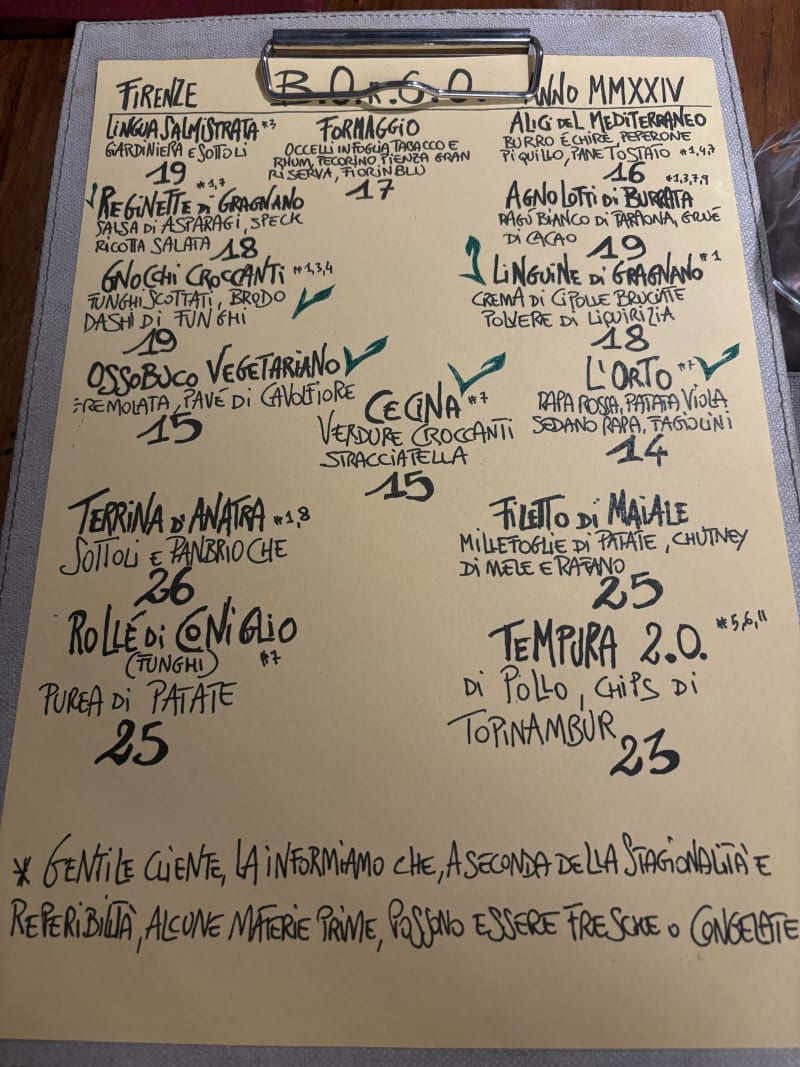 FIRENZE B.O.R.G.O. ANNO MMXXIV
LINGUA SALMISTRATA *3
GIARDINIERA E SOTTOLI
19
FORMAGGIO
OCCELLI IN FOGLIA TABACCO E
RHUM, PECORINO PIENZA GRAN
RISERVA, FIORINBLU
17
ALICI DEL MEDITERRANEO
BURRO ÉCHIRÉ, PEPERONE
PIQUILLO, PANE TOSTATO *1,4,7
16
REGINETTE DI GRAGNANO *1,7
SALSA DI ASPARAGI, SPECK
RICOTTA SALATA 18
AGNOLOTTI DI BURRATA *1,3,7,9
RAGÙ BIANCO DI FARAONA, GRUÉ
DI CACAO 19
GNOCCHI CROCCANTI *1,3,4
FUNGHI SCOTTATI, BRODO
DASHI DI FUNGHI
19
LINGUINE DI GRAGNANO *1
CREMA DI CIPOLLE BRUCIATE
POLVERE DI LIQUIRIZIA
18
OSSOBUCO VEGETARIANO
GREMOLATA, PAVÉ DI CAVOLFIORE
15
CECINA *7
VERDURE CROCCANTI
STRACCIATELLA
15
L'ORTO *7
RAPA ROSSA, PATATA VIOLA
SEDANO RAPA, TAGIOLINI
14
TERRINA D'ANATRA *1,8
SOTTOLI E PANBRIOCHE
26
FILETTO DI MAIALE
MILLEFOGLIE DI PATATE, CHUTNEY
DI MELE E RAFANO
25
ROLLÉ DI CONIGLIO
(FUNGHI) *7
PUREA DI PATATE
25
TEMPURA 2.0. *5,6,11
DI POLLO, CHIPS DI
TOPINAMBUR
23
* GENTILE CLIENTE, LA INFORMIAMO CHE, A SECONDA DELLA STAGIONALITÀ E
REPERIBILITÀ, ALCUNE MATERIE PRIME, POSSONO ESSERE FRESCHE O CONGELATE